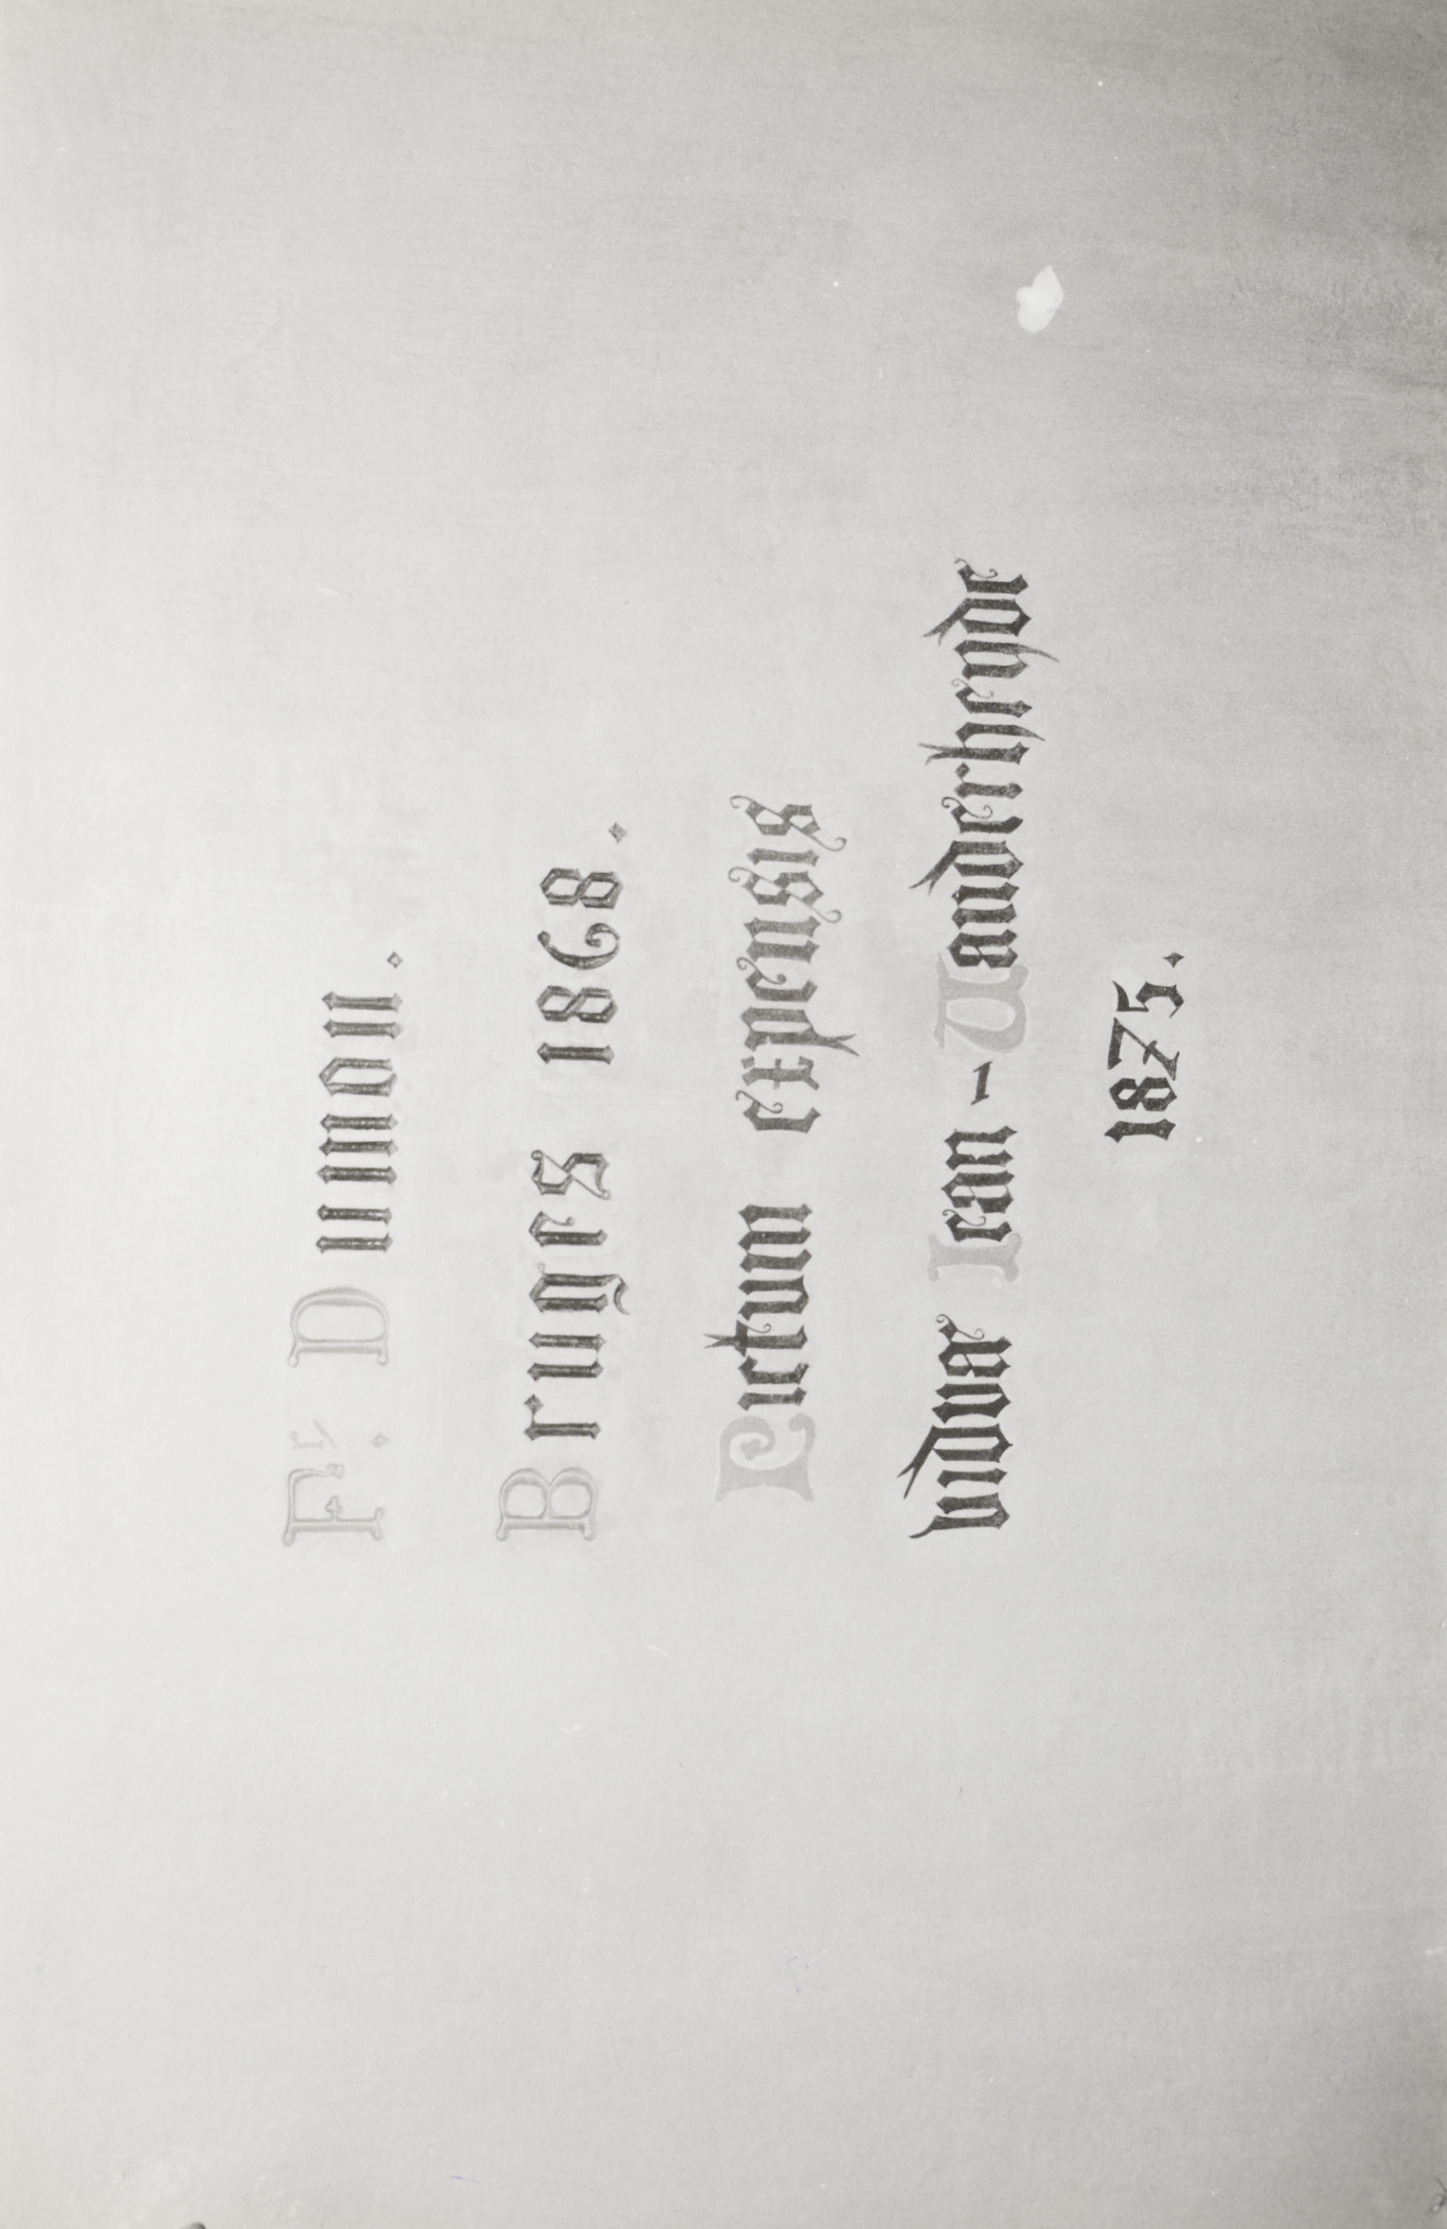 Fs. Dumon.
Bruges 1868.
Pictum expensis
viduæ Jean - Vanderheyde
1875.